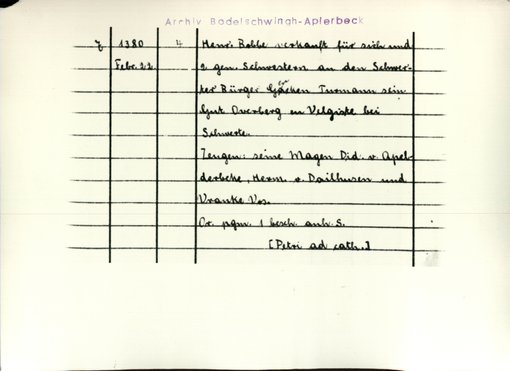 Archiv Bodelschwingh-Aplerbeck
7 1380 4 Henr. Bobbe verkauft für sich und
Febr. 22. 2 gen. Schwestern an den Schwer-
ter Bürger Turmann sein
Gut Overberg en Velgiste bei
Schwerte.
Zeugen: seine Magen Did. v. Apel-
derbeke, Herm. v. Dailhusen und
Vranke Vos.
Or. pgm. 1 besch. anh. S.
[Petri ad cath.]